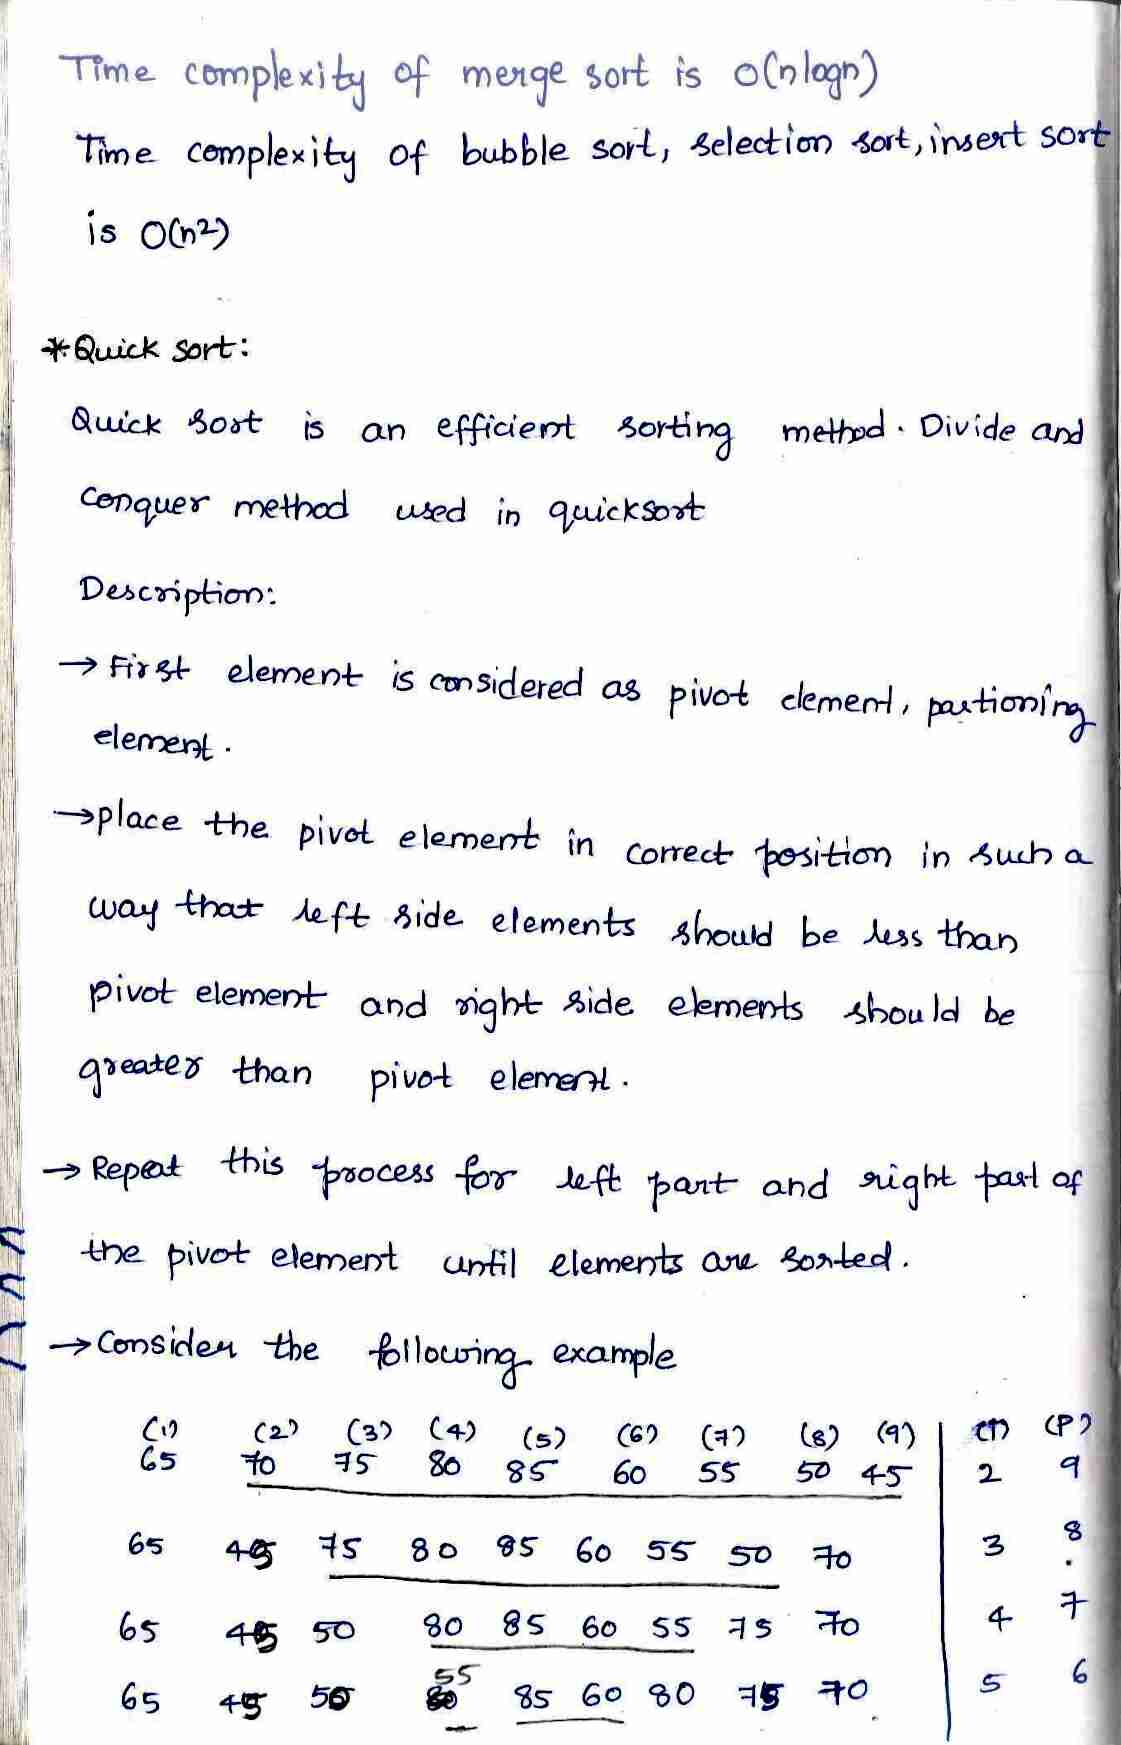 Time complexity of merge sort is O(n logn)
Time complexity of bubble sort, selection sort, insert sort
is O(n2)
*Quick sort:
Quick sort is an efficient sorting method. Divide and
Conquer method used in quicksort
Description:
→ First element is considered as pivot element, partioning
element.
→ place the pivot element in correct position in such a
way that left side elements should be less than
pivot element and right side elements should be
greater than pivot element.
→ Repeat this process for left part and right part of
the pivot element until elements are sorted.
→ Consider the following example
(1) (2) (3) (4) (5) (6) (7) (8) (9) (P)
65 70 75 80 85 60 55 50 45 2 9
65 45 75 80 85 60 55 50 70 3 8
65 45 50 80 85 60 55 75 70 4 7
65 45 50 55 85 60 80 75 70 5 6